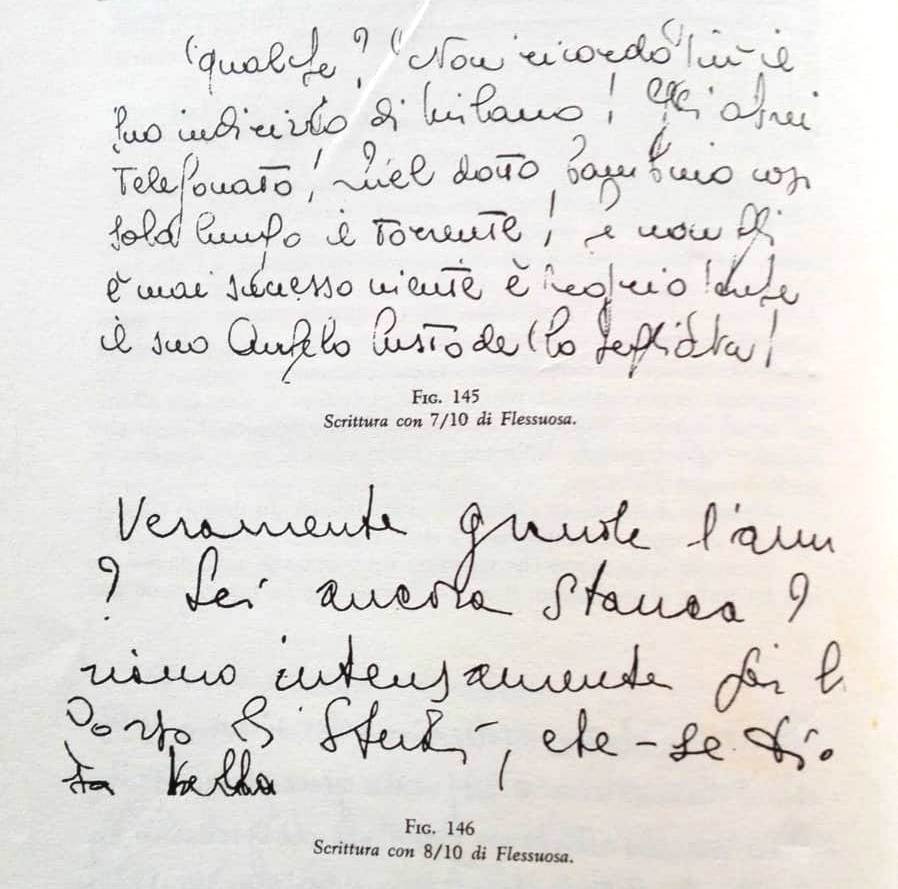 qualche? Non ricordo più il
suo indirizzo di Milano! Gli avrei
Telefonato! Quel dotto bambino così
solo lungo il Torrente! e non gli
è mai successo niente è proprio
il suo Angelo Custode lo
FIG. 145
Scrittura con 7/10 di Flessuosa.
Veramente grande l'
? Sei ancora stanca?
intensamente per l
di , che - se Dio
FIG. 146
Scrittura con 8/10 di Flessuosa.